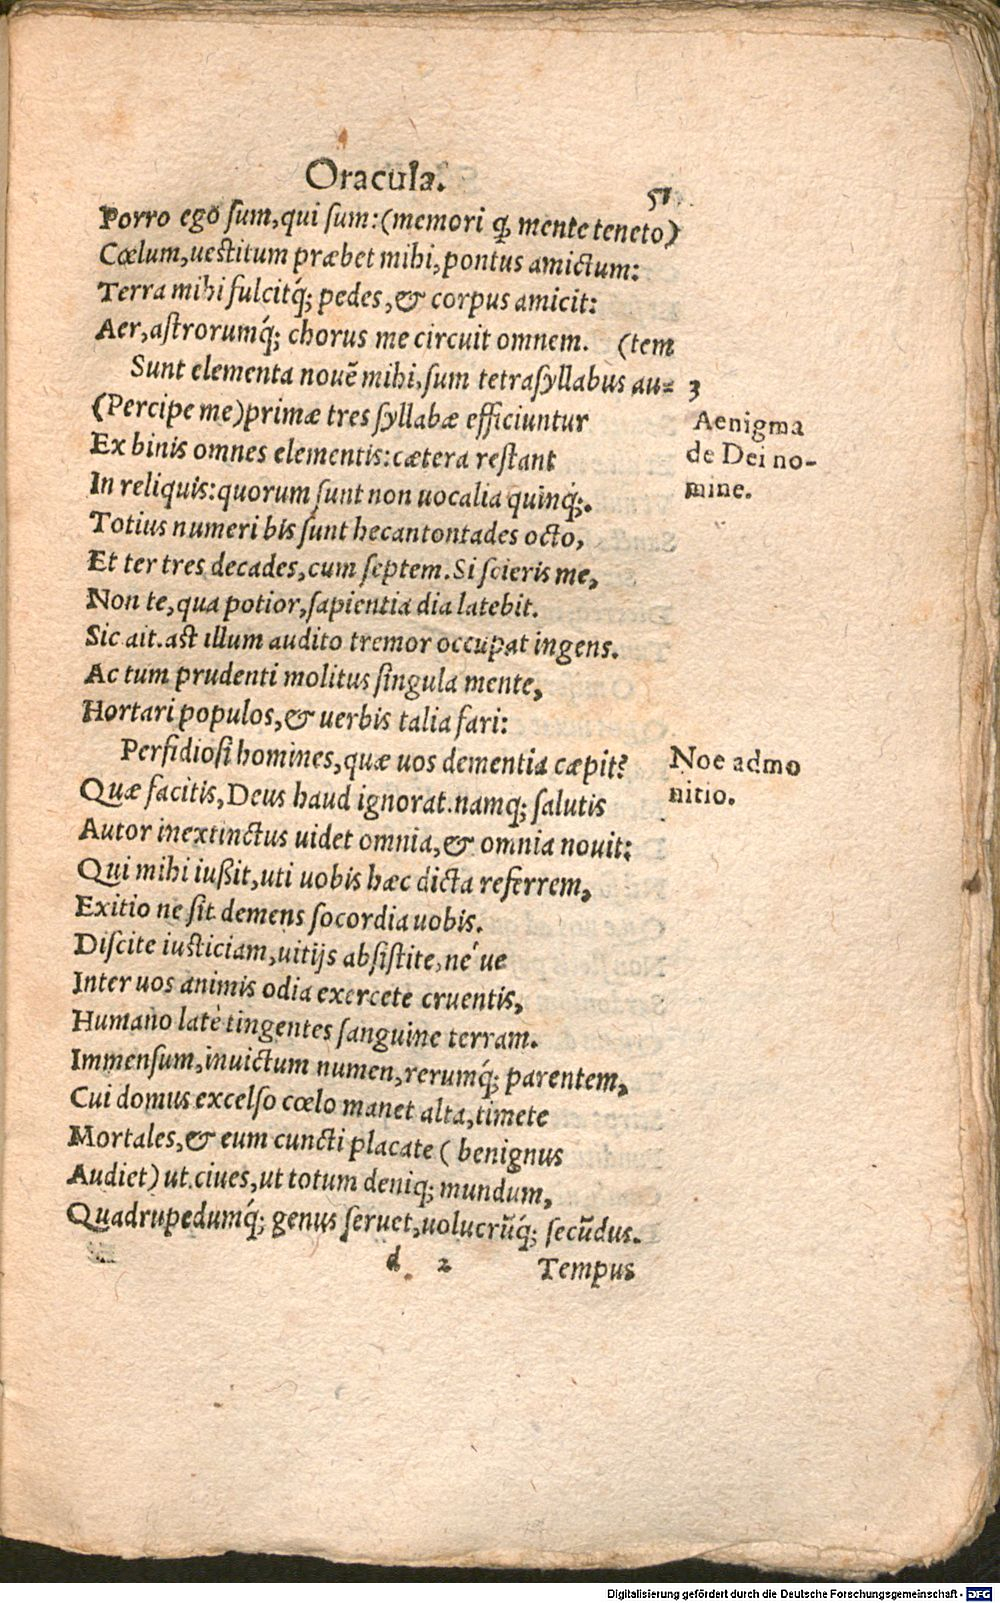 Oracula.
51
Porro ego sum, qui sum: (memori q; mente teneto)
Cœlum, uestitum præbet mihi, pontus amictum:
Terra mihi fulcitq́; pedes, & corpus amicit:
Aer, astrorumq́; chorus me circuit omnem. (tem
Sunt elementa nouẽ mihi, sum tetrasyllabus au= 3
(Percipe me) primæ tres syllabæ efficiuntur
Aenigma
Ex binis omnes elementis: cætera restant
de Dei no-
In reliquis: quorum sunt non uocalia quinq́;.
mine.
Totius numeri bis sunt hecantontades octo,
Et ter tres decades, cum septem. Si scieris me,
Non te, qua potior, sapientia dia latebit.
Sic ait. ast illum audito tremor occupat ingens.
Ac tum prudenti molitus singula mente,
Hortari populos, & uerbis talia fari:
Perfidiosi homines, quæ uos dementia cæpit?
Noe admo
Quæ facitis, Deus haud ignorat. namq; salutis
nitio.
Autor inextinctus uidet omnia, & omnia nouit:
Qui mihi iußit, uti uobis hæc dicta referrem,
Exitio ne sit demens socordia uobis.
Discite iusticiam, uitijs absistite, né ue
Inter uos animis odia exercete cruentis,
Humano latè tingentes sanguine terram.
Immensum, inuictum numen, rerumq́; parentem,
Cui domus excelso cœlo manet alta, timete
Mortales, & eum cuncti placate (benignus
Audiet) ut ciues, ut totum deniq; mundum,
Quadrupedumq́; genus seruet, uolucrũq́; secũdus.
d 2 Tempus
Digitalisierung gefördert durch die Deutsche Forschungsgemeinschaft - DFG